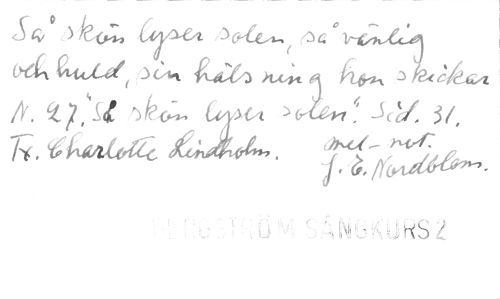 Så skön lyser solen, så vänlig
och huld, sin hälsning hon skickar
N. 27. "Så skön lyser solen". Sid. 31.
Tx. Charlotte Lindholm. mel-not.
J. E. Nordblom.
BERGSTRÖM SÅNGKURS 2